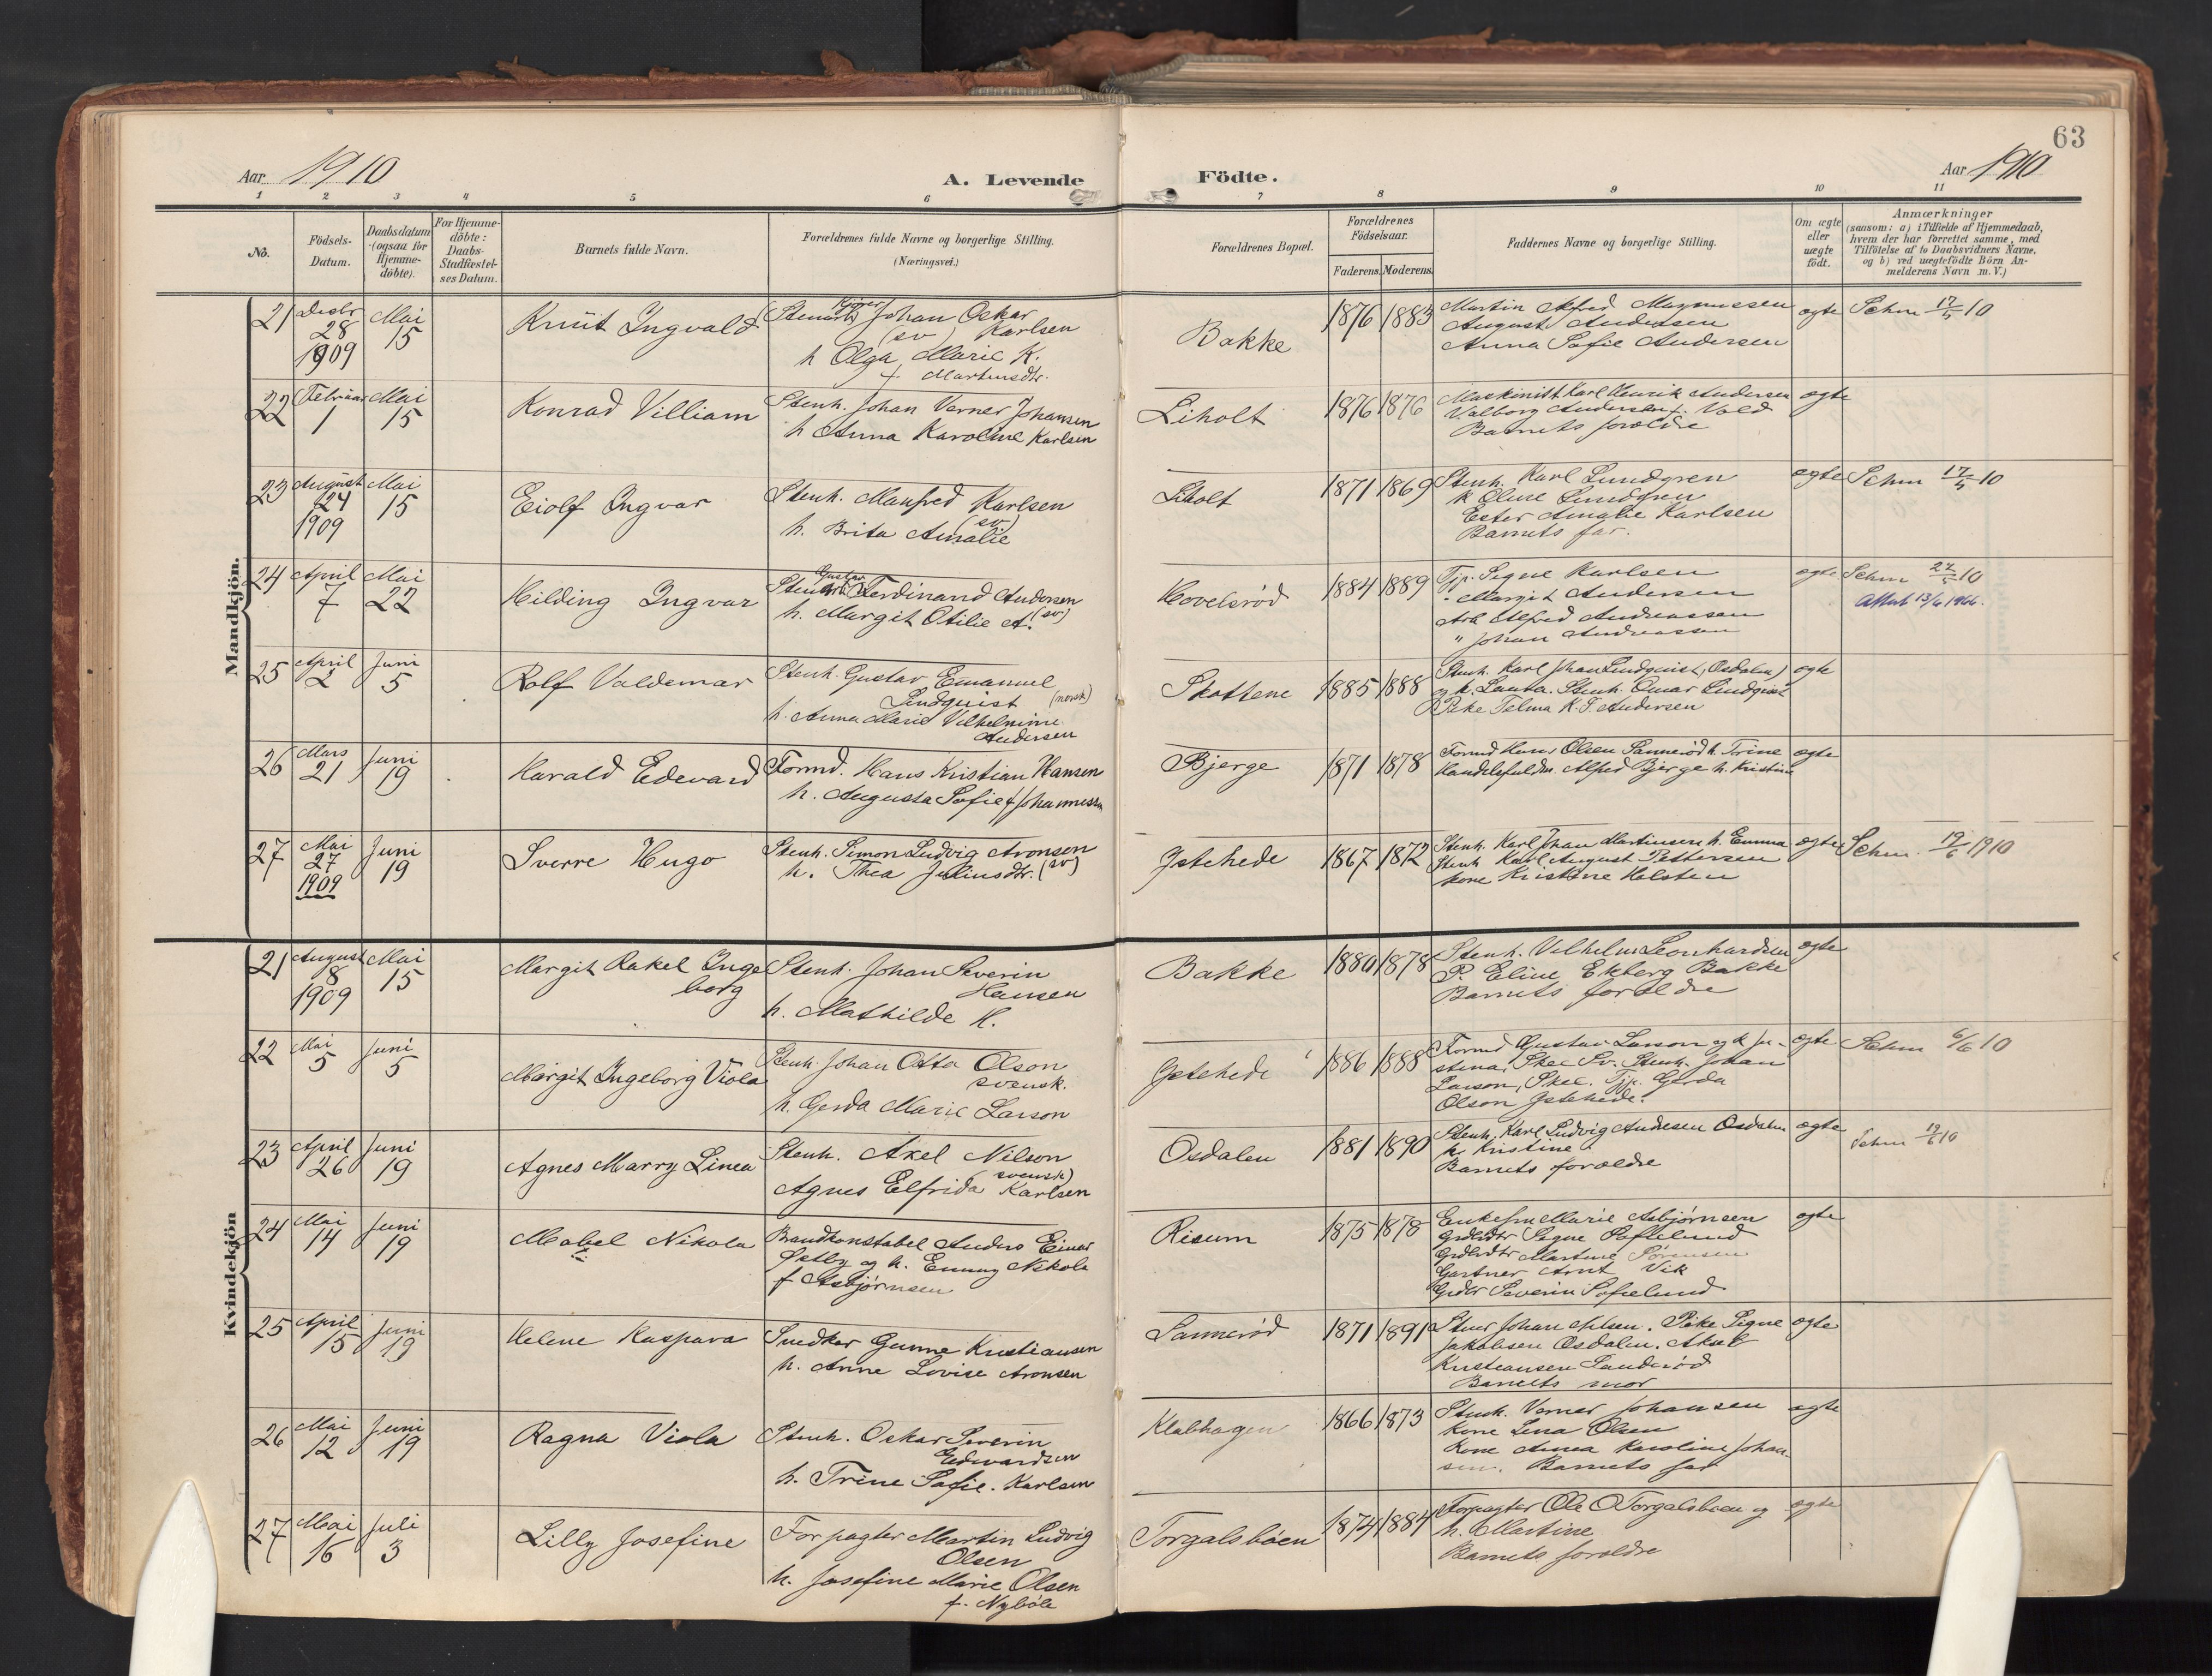 63
Aar 1910
A. Levende
Födte.
Aar 1910
1 2 3 4 5 6 7 8 9 10 11
No.
Födsels-
Datum.
Daabsdatum
(ogsaa for
Hjemme-
döbte).
For Hjemme-
döbte:
Daabs-
Stadfæstel-
ses Datum.
Barnets fulde Navn.
Forældrenes fulde Navne og borgerlige Stilling.
(Næringsvei.)
Forældrenes Bopæl.
Forældrenes
Födselsaar.
Faderens. Moderens.
Faddernes Navne og borgerlige Stilling.
Om ægte
eller
uægte
födt.
Anmærkninger
(saasom: a) i Tilfælde af Hjemmedaab,
hvem der har forrettet samme, med
Tilföielse af to Daabsvidners Navne,
og b) ved uægtefödte Börn An-
melderens Navn m. V.)
Mandkjön.
21
Decbr
28
1909
Mai
15
Knut Ingvald
Kjører
Stenarb Johan Oskar
(sv) Karlsen
h Olga Marie K.
f. Martinsdtr.
Bakke
1876 1883
Martin Alfred Magnussen
August Andersen
Anna Sofie Andersen
ægte
Schm 17/5 10
22
Februar
1
Mai
15
Konrad Villiam
Stenh. Johan Verner Johansen
h Anna Karoline Karlsen
Liholt
1876 1876
Maskinist Karl Henrik Andersen
Valborg Andersen f. Vold
Barnets forældre
ægte
23
August
24
1909
Mai
15
Eiolf Ingvar
Stenh. Manfred Karlsen
(sv)
h. Brita Amalie
Liholt
1871 1869
Stenh. Karl Lundgren
k Oline Lundgren
Ester Amalie Karlsen
Barnets far.
ægte
Schm 17/5 10
24
April
7
Mai
22
Hilding Ingvar
Gustav
Stenarb Ferdinand Andersen
h. Margit Otilie A. (sv)
Hovelsrød
1884 1889
Tjp. Signe Karlsen
" Margit Andersen
Arb Alfred Andreassen
" Johan Andreassen
ægte
Schm 24/5 10
Attest 13/6 1966.
25
April
2
Juni
5
Rolf Valdemar
Stenh. Gustav Emanuel
Lindquist (norsk)
h. Anna Marie Vilhelmine
Andersen
Skottene
1885 1888
Stenh. Karl Johan Lindquist, Osdalen)
og h. Laura. Stenh. Omar Lindquist
Pike Telma K. S. Andersen
ægte
26
Mars
21
Juni
19
Harald Edevard
Formd. Hans Kristian Hansen
h. Augusta Sofie f Johannessen
Bjerge
1871 1878
Formd Hans Olsen Sannerød h. Trine
Handelsfuldm. Alfred Bjerge h. Kristine
ægte
27
Mai
27
1909
Juni
19
Sverre Hugo
Stenh. Simon Ludvig Aronsen
h. Thea Juliusdtr. (sv)
Ystehede
1867 1872
Stenh. Karl Johan Martinsen h. Emma
Stenh Karl August Pettersen
kone Kristine Holsten
ægte
Schm. 19/6 1910
Kvindekjön
21
August
8
1909
Mai
15
Margit Rakel Inge
borg
Stenh. Johan Severin
Hansen
h. Mathilde H.
Bakke
1880 1878
Stenh. Vilhelm Leonhardsen
P. Eline Ekberg Bakke
Barnets forældre
ægte
22
Mai
5
Juni
5
Margit Ingeborg Viola
Stenh. Johan Otto Olson
svensk.
h. Gerda Marie Larson
Ystehede
1886 1888
Formd Gustav Larson og k Ju-
stina, Skee Sv. Stenh. Johan
Larson, Skee. Tjp. Gerda
Olson Ystehede.
ægte
Schm 6/6 10
23
April
26
Juni
19
Agnes Marry Linea
Stenh. Axel Nilson
svensk)
Agnes Elfrida Karlsen
Osdalen
1881 1890
Stenh. Karl Ludvig Andresen Osdalen
k. Kristine
Barnets forældre
ægte
Schm 19/6 10
24
Mai
14
Juni
19
Mabel Nikola
Brandkonstabel Anders Einar
Østby og h. Emmy Nikola
f Asbjørnsen
Risum
1875 1878
Enkefru Marie Asbjørnsen
Grdbrdtr Signe Sofielund
Grdbrdtr Martine Sørensen
Gartner Arnt Vik
Grdbr Severin Sofielund
ægte
25
April
15
Juni
19
Helene Kaspara
Snedker Gunne Kristiansen
h. Anne Lovise Aronsen
Sannerød
1871 1891
Johan Nilsen. Pike Signe
Jakobsen Osdalen. Aksel
Kristiansen Sanderød
Barnets mor
ægte
26
Mai
12
Juni
19
Ragna Viola
Stenh. Oskar Severin
Edvardsen
h. Trine Sofie. Karlsen
Klebhagen
1866 1873
Stenh. Verner Johansen
Kone Lena Olsen
Kone Anna Karoline Johan
sen. Barnets far
ægte
27
Mai
16
Juli
3
Lilly Josefine
Forpagter Martin Ludvig
Olsen
h. Josefine Marie Olsen
f. Nybøle
Torgalsbøen
1874 1884
Forpagter Ole O Torgalsbøen og
h. Martine
Barnets forældre
ægte